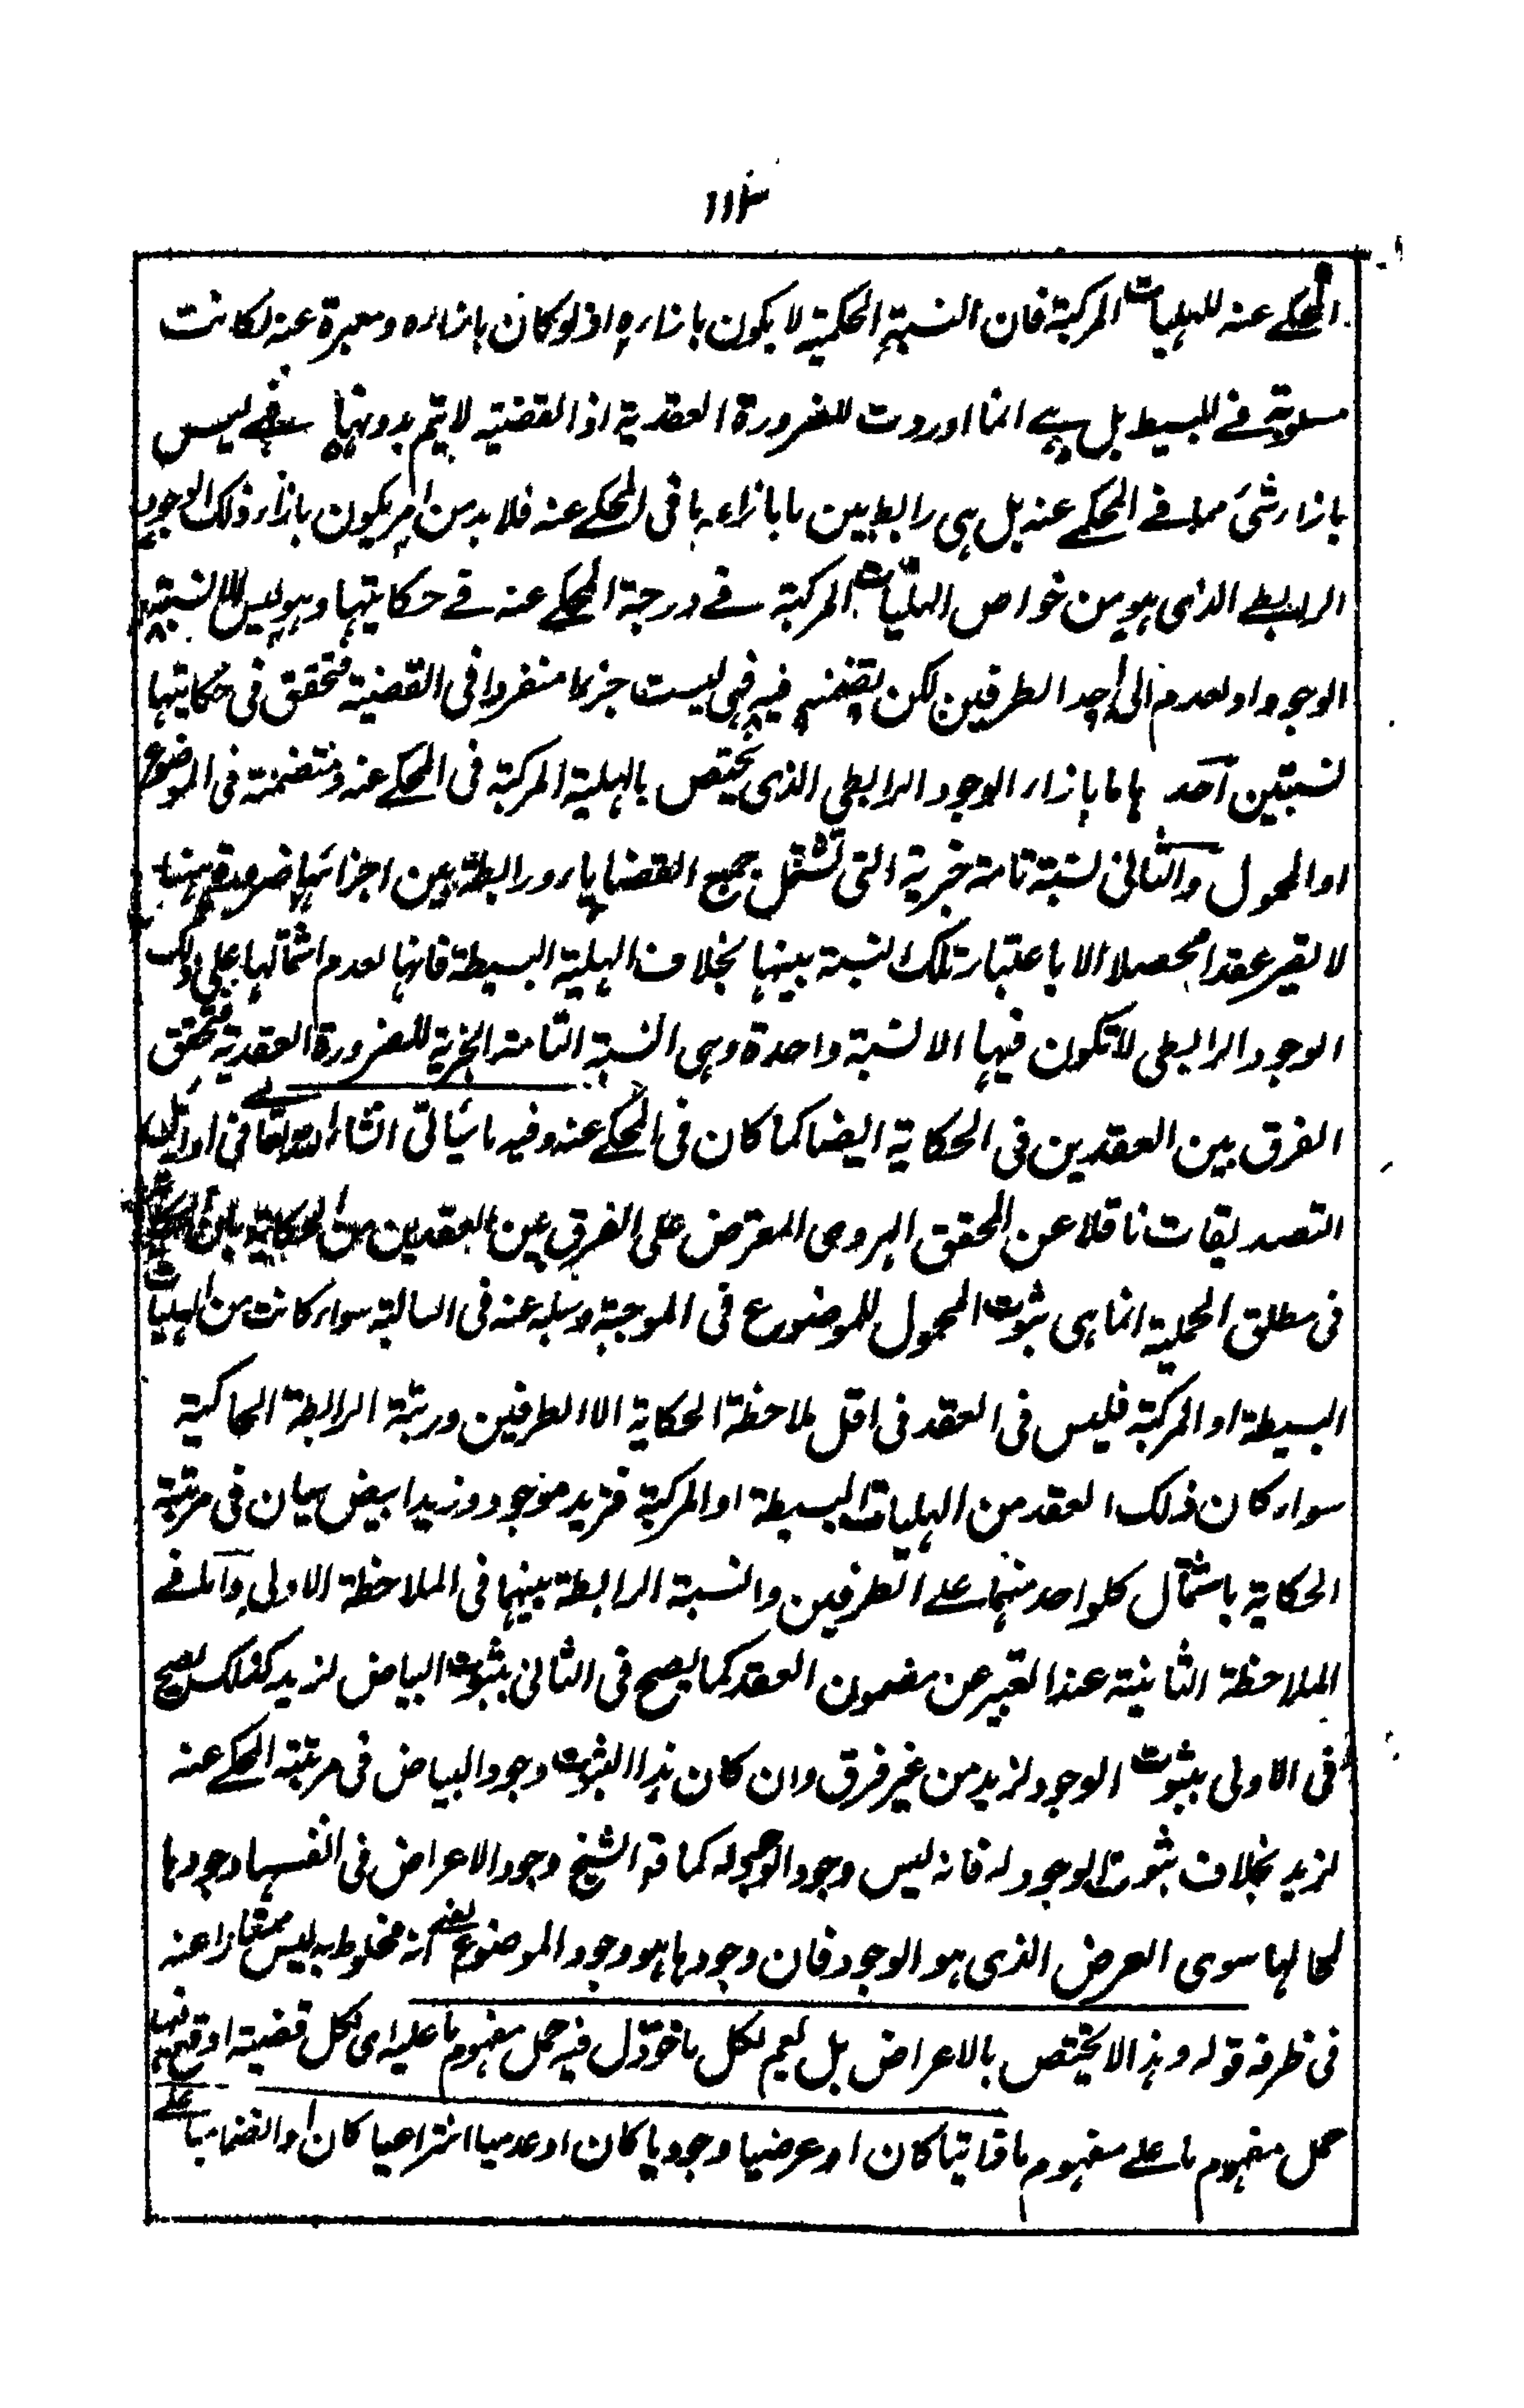 ١١٣
المحكے عنه للهليات المركبة فان النسبة الحكمية لا يكون بازاره اذ لو كان بازاره ومعبرة عنه لكانت
مسلوبة فے البسيط بل ہے انما اوردت للضرورة العقدية اذ القضية لا يتم بدونها فهے ليس
بازار شئ مما فے المحكے عنه بل ہى رابط بين ما بازاءه ما فى المحكے عنه فلا بد من امر يكون بازار ذلك الوجود
الرابطے الذى ہو من خواص الهليات المركبة فے درجة المحكے عنه فے حكايتها وہو ليس الا نسبة
الوجود او العدم الى احد الطرفين لكن يتضمنه فيه فهى ليست جزءا منفردا فى القضية فتحقق فى حكايتها
نسبتين احد ہا ما بازار الوجود الرابطى الذى يختص بالهلية المركبة فى المحكے عنه ومتضمنة فى الموضوع
او المحمول والثانى نسبة تامة خبرية التى تشتمل جميع القضايا ورابطة بين اجزائها ضرورة انها
لا يصير عقدا محصلا الا باعتبار تلك النسبة بينها بخلاف الهلية البسيطة فانها لعدم اشتمالها على ذلك
الوجود الرابطى لا تكون فيها الا نسبة واحدة وہى النسبة التامة الخبرية للضرورة العقدية فتحقق
الفرق بين العقدين فى الحكاية ايضا كما كان فى المحكے عنه وفيه ما سيأتى انشاء الله تعالے فى اوائل
التصديقات ناقلا عن المحقق الهروى المعترض على الفرق بين العقدين من الحكاية بان الحكاية
فى مطلق الحملية انما ہى ثبوت المحمول للموضوع فى الموجبة وسلبه عنه فى السالبة سوار كانت من الهليات
البسيطة او المركبة فليس فى العقد فى اقل ملاحظة الحكاية الا الطرفين ورتبة الرابطة الحاكية
سوار كان ذلك العقد من الهليات البسيطة او المركبة فزيد موجود وزيد ابيض سيان فى مرتبة
الحكاية باشتمال كلواحد منهما علے الطرفين والنسبة الرابطة بينهما فى الملاحظة الاولى واما فے
الملاحظة الثانية عند التعبير عن مضمون العقد كما يصح فى الثانى بثبوت البياض لزيد كذلك يصح
فى الاولى بثبوت الوجود لزيد من غير فرق وان كان ہذا الثبوت وجود البياض فى مرتبة المحكے عنه
لزيد بخلاف ثبوت الوجود له فانه ليس وجود الوجود له كما قه الشيخ وجود الاعراض فى انفسہا وجودہا
لمحالها سوى العرض الذى ہو الوجود فان وجودہا ہو وجود الموضوع يعنے انه مخلوط به ليس ممتازا عنه
فى ظرفه قوله وہذا لا يختص بالاعراض بل يعم لكل ما خوّل فيه حمل مفہوم ما عليه اى لكل قضية اوقع فيها
حمل مفہوم ما علے مفہوم ما ذاتيا كان او عرضيا وجوديا كان او عدميا انتزاعيا كان او انضماميا علے